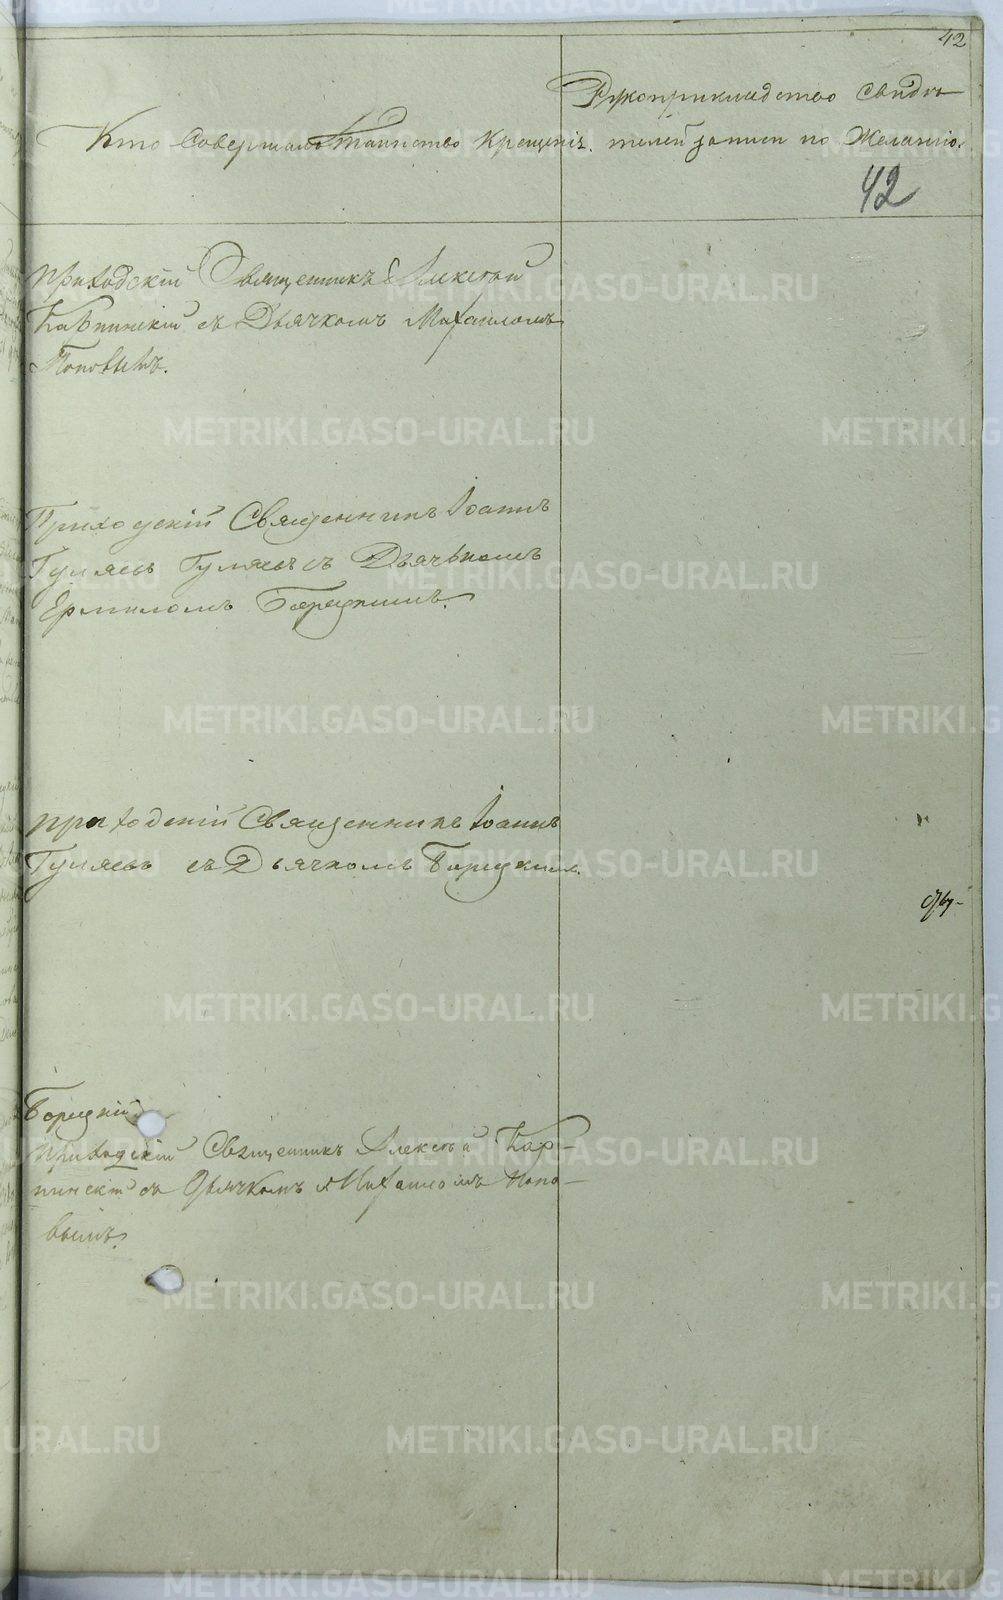 42
Рукоприкладство свидѣ-
Кто Совершалъ Таинство Крещенія. телей записи по Желанію.
42
приходскій Священникъ Алексѣй
Карпинскій съ Дьячкомъ Михаиломъ
Поповымъ.
Приходскій Священникъ Іоаннъ
Гуляевъ Гуляевъ съ Дьячькомъ
Ермиломъ Борецкимъ.
приходскій Священникъ Іоаннъ
Гуляевъ съ Дьячкомъ Борецкимъ.
Борецкій
приходскій Священникъ Алексѣй Кар-
пинскій съ Дьячкомъ Михаиломъ Попо-
вымъ.
METRIKI.GASO-URAL.RU